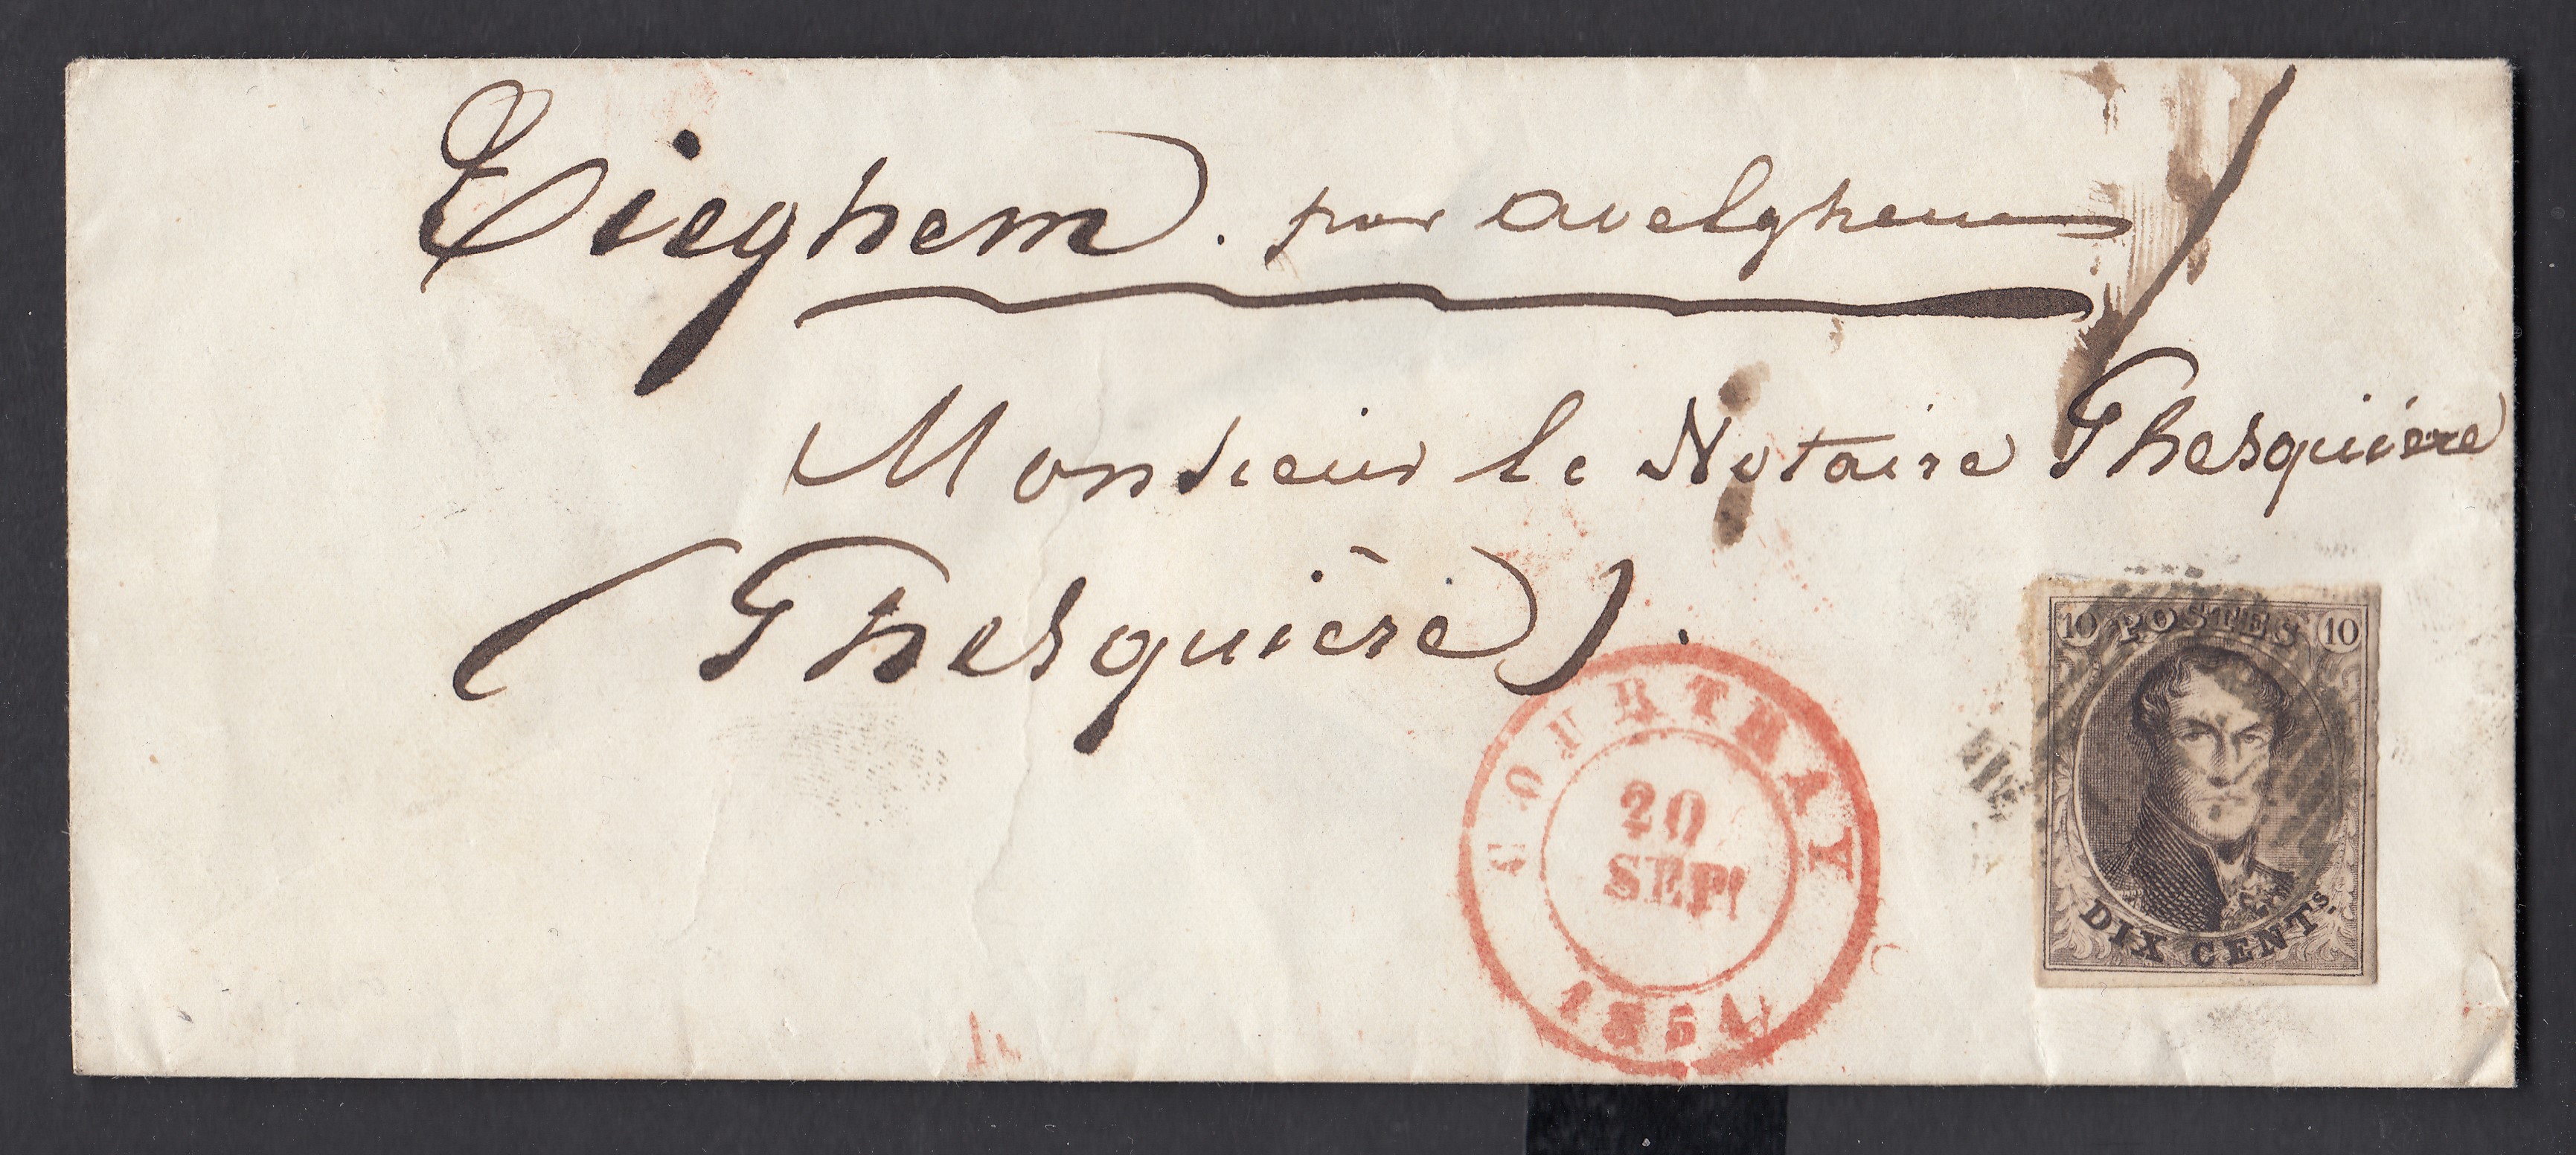 Tieghem. par avelghem
Monsieur le Notaire Ghesquière
(Ghesquière).
COURTRAY
20
SEPT
1854
10 POSTES 10
DIX CENTS.